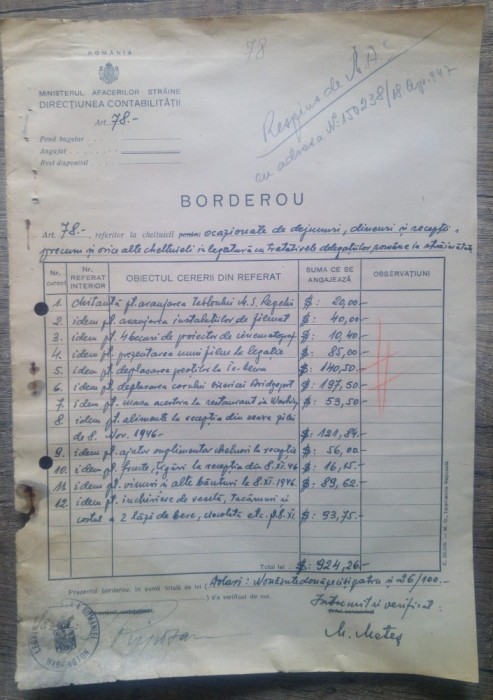 78
ROMÂNIA
MINISTERUL AFACERILOR STRĂINE
DIRECȚIUNEA CONTABILITĂȚII
Art. 78.-
Fond bugetar
Angajat
Rest disponibil
Respins de
cu adresa No. 150238/18 947
BORDEROU
Art. 78.-, referitor la cheltueli pentru ocazionate de dejunuri, dineuri și recepții
precum și orice alte cheltueli în legătură cu tratativele delegațiilor române în străinătate
Nr. curent
Nr. REFERAT INTERIOR
OBIECTUL CERERII DIN REFERAT
SUMA CE SE ANGAJEAZĂ
OBSERVAȚIUNI
1. Chitanță pt. aranjarea tabloului M.S. Regelui $: 20,00.-
2. idem pt. aranjarea instalațiilor de filmat $: 40,00.-
3. idem pt. 4 becuri de proiector de cinematograf $: 10,40
4. idem pt. prezentarea unui film la legație $: 85,00
5. idem pt. deplasarea la $: 140,50
6. idem pt. deplasarea corului bisericii Bridgeport $: 197,50
7. idem pt. masa acestora la restaurant în $: 53,50
8 idem pt. alimente la recepția din seara zilei
de 8. Nov. 1946- $: 121,84.-
9. idem pt. ajutor suplimentar la recepție $: 56,00
10. idem pt. fructe, țigări la recepția din 8.XI.46 $: 16,15.-
11. idem pt. vinuri și alte băuturi la 8.XI.1946. $: 89,62.-
12. idem pt. închiriere de veselă, tacâmuri și
costul a 2 lăzi de bere, etc. p. 8.XI. $: 93,75.-
Total lei $: 924,26.-
Prezentul borderou, în sumă totală de lei ( Dolari: Nouăsutedouăzecișipatru și 26/100.-
) s'a verificat de noi.
Întocmit și verificat:
M. Mateș